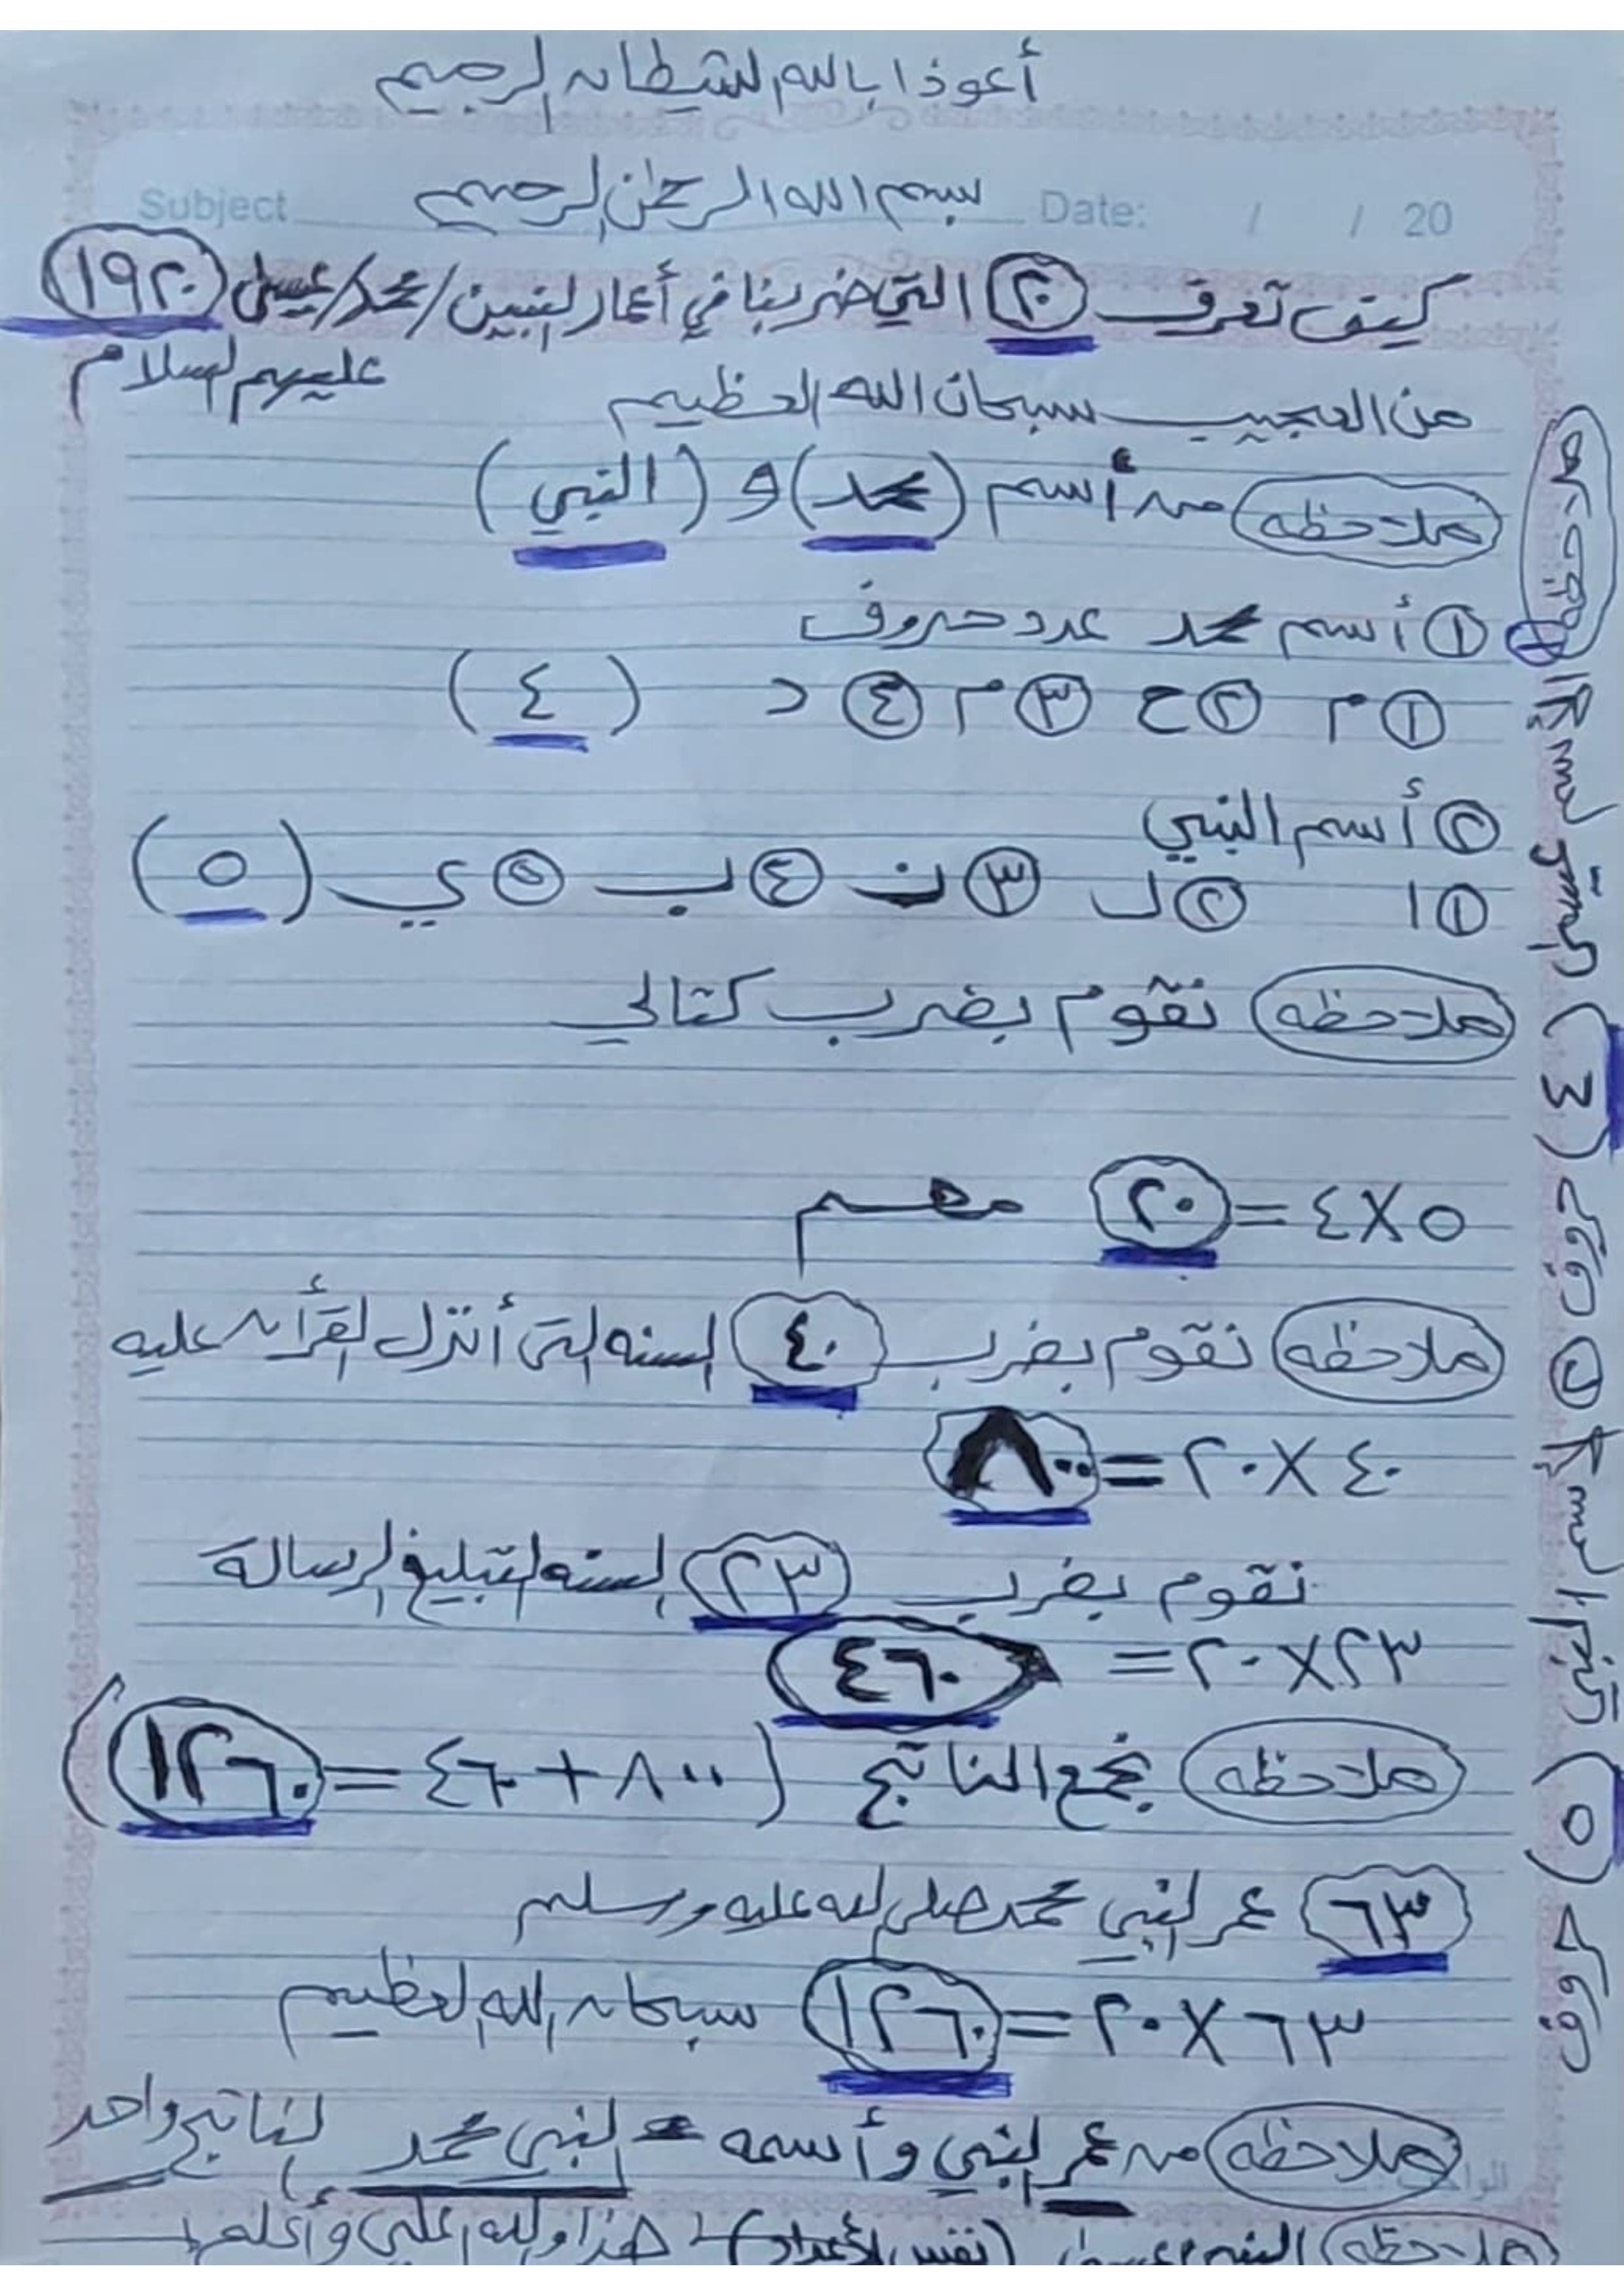 أعوذا بالله الشيطان الرجيم
بسم الله الرحمٰن الرحيم
Subject Date: / / 20
كيف تعرف ٢٠ التي ضربنا في أعمار النبين / محمد / عيسى ١٩٢٠
عليهم السلام
من العجيب سبحان الله العظيم
ملاحظه من أسم (محمد) و (النبي)
١ أسم محمد عدد حروف
١ م ٢ ح ٣ م ٤ د (٤)
٢ أسم النبي
١ ا ٢ ل ٣ ن ٤ ب ٥ ي (٥)
ملاحظه نقوم بضرب كتالي
٥ X ٤ = ٢٠ مهم
ملاحظه نقوم بضرب ٤٠ السنه التى أنزل القرأن عليه
٤٠ X ٢٠ = ٨٠٠
نقوم بضرب ٢٣ السنه لتبليغ الرسالة
٢٣ X ٢٠ = ٤٦٠
ملاحظه نجمع الناتج (٨٠٠ + ٤٦٠ = ١٢٦٠)
٦٣ عمر النبي محمد صلى الله عليه وسلم
٦٣ X ٢٠ = ١٢٦٠ سبحان الله العظيم
ملاحظه من عمر النبي وأسمه = النبي محمد الناتج واحد
ملاحظه النبي عيسى (نفس الأعداد) هذا والله أعلى وأعلم
١ السنة (٤) فوق ٢ السنة (٥) فوق